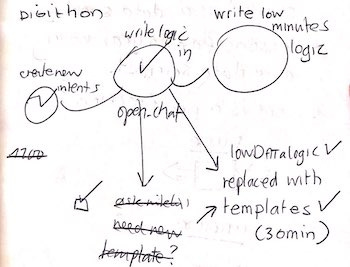 DIGITHON
write logic
in
open-chat
create new
intents
write low
minutes
logic
1700
lowDATAlogic
replaced with
templates
(30min)
need new
template?